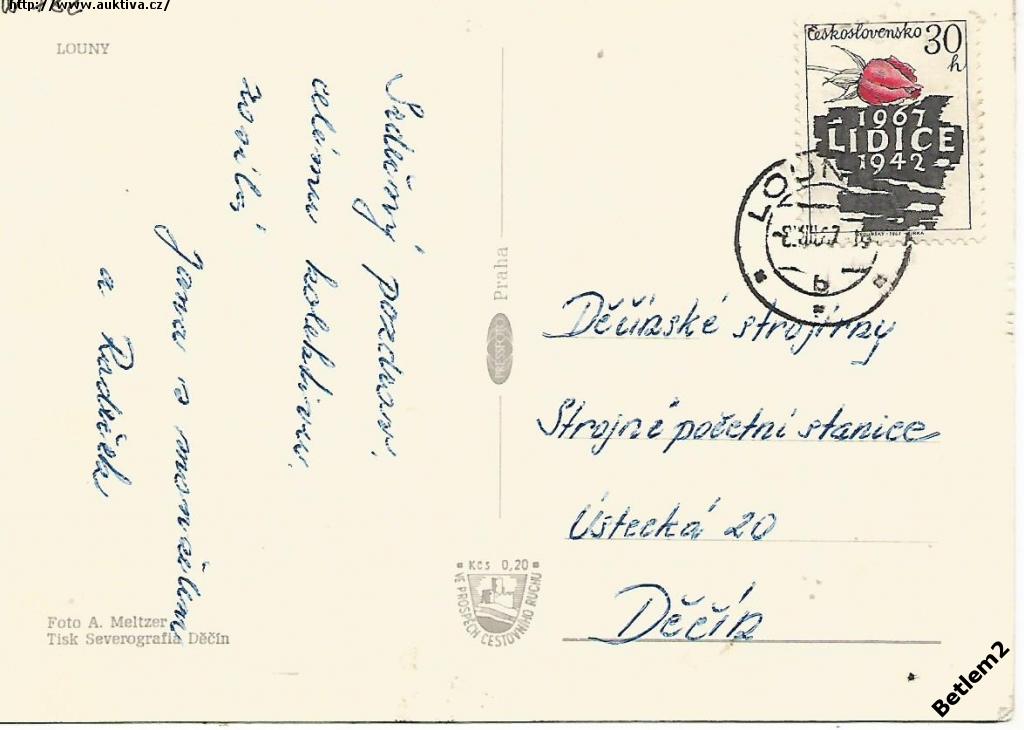 http://www.auktiva.cz/
LOUNY
Srdečný pozdrav
celému kolektivu
Jana s manželem
a Radeček
Foto A. Meltzer
Tisk Severografia Děčín
PRESSFOTO Praha
Kčs 0,20
VE PROSPĚCH CESTOVNÍHO RUCHU
Československo 30 h
1967
LIDICE
1942
Děčínské strojírny
Strojně početní stanice
Ústecká 20
Děčín
Betlem2